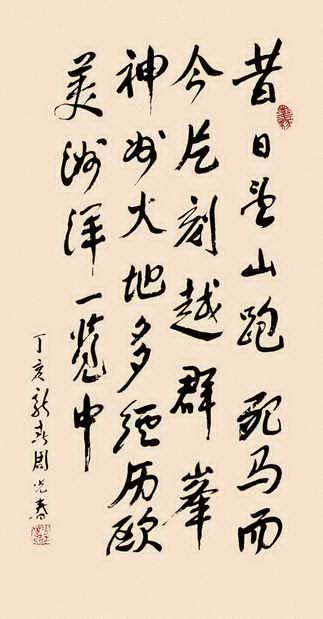 昔日望山跑死马而
今片刻越群峯
神州大地多经历欧
美洲洋一览中
丁亥新春周光